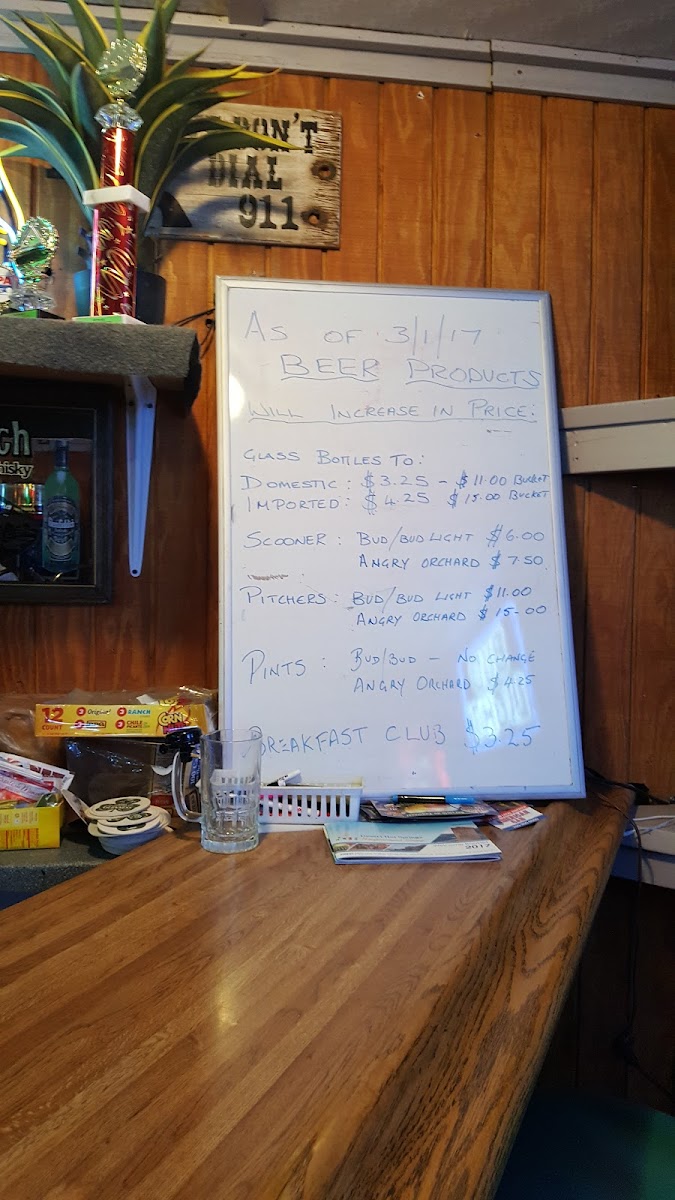 DON'T
DIAL
911
AS OF 3/1/17
BEER PRODUCTS
WILL INCREASE IN PRICE:
GLASS BOTTLES TO:
DOMESTIC: $3.25 - $11.00 BUCKET
IMPORTED: $4.25 $15.00 BUCKET
SCOONER: BUD/BUD LIGHT $6.00
ANGRY ORCHARD $7.50
PITCHERS: BUD/BUD LIGHT $11.00
ANGRY ORCHARD $15.00
PINTS: BUD/BUD - NO CHANGE
ANGRY ORCHARD $4.25
BREAKFAST CLUB $3.25
ch
hisky
12 COUNT
Original
RANCH
CHILE PICANTE
CORN
2017